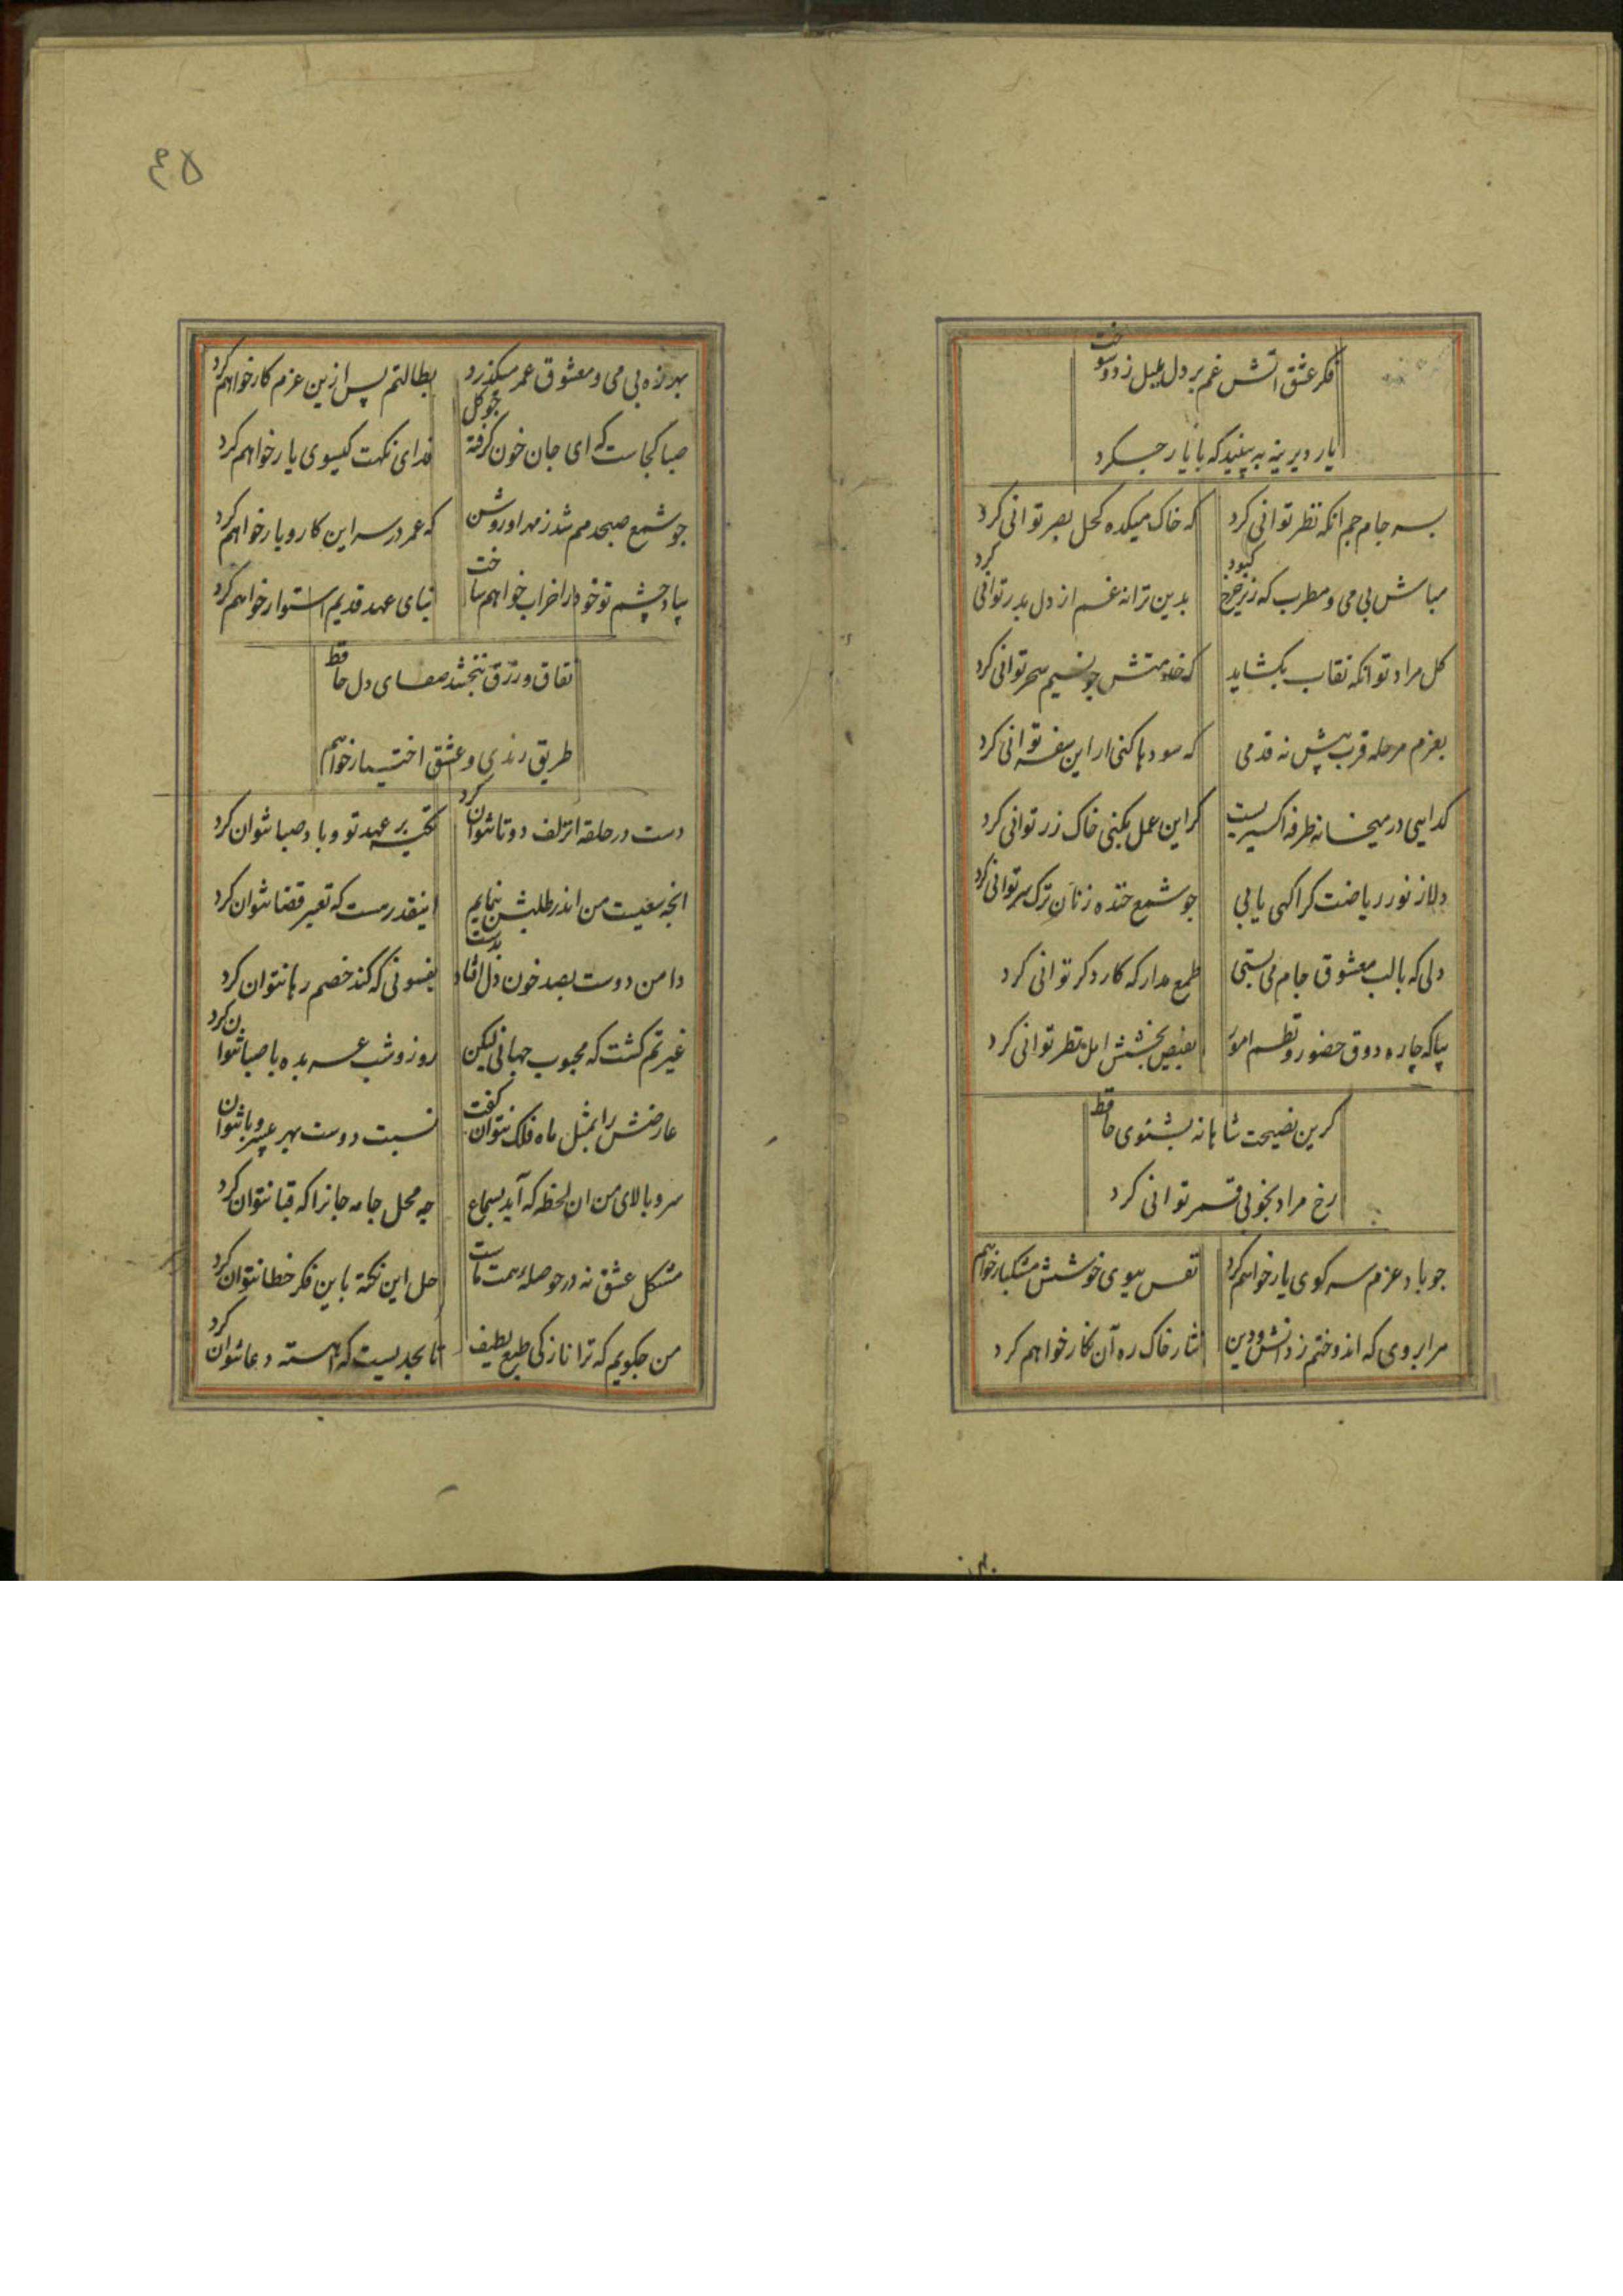 فکر عشق آتش غم بر دل بلبل زد و سوخت
یار دیرینه به بینید که با یار چه کرد
بسر جام جم آنکه نظر توانی کرد
که خاک میکده کحل بصر توانی کرد
مباش بی می و مطرب که زیر چرخ کبود
بدین ترانه غم از دل بدر توانی کرد
کل مراد تو آنکه نقاب بکشاید
که خدمتش جو نسیم سحر توانی کرد
بعزم مرحله قرب پیش نه قدمی
که سودها کنی ار این سفر توانی کرد
کدایی در میخانه طرفه اکسیریست
کر این عمل بکنی خاک زر توانی کرد
دلا ز نور ریاضت کر اکهی یابی
جو شمع خنده زنان ترک سر توانی کرد
دلی که با لب معشوق جام می بستی
طمع مدار که کار دکر توانی کرد
بیا که چاره ذوق حضور و نظم امور
بفیض بخشش اهل نظر توانی کرد
کرین نصیحت شاهانه بشنوی حافظ
رخ مراد بخوبی قمر توانی کرد
جو باد عزم سر کوی یار خواهم کرد
نفس ببوی خوشش مشکبار خواهم
مرا بروی که اندوختم ز دانش و دین
نثار خاک ره آن نکار خواهم کرد
۴۵
بهرزه بی می و معشوق عمر میکذرد
بطالتم بس ازین عزم کار خواهم کرد
صبا کجاست که ای جان خون کرفته جو کل
فدای نکهت کیسوی یار خواهم کرد
جو شمع صبحدمم شد ز مهر او روشن
که عمر در سر این کار و بار خواهم کرد
بیاد چشم تو خود را خراب خواهم ساخت
بنای عهد قدیم استوار خواهم کرد
نفاق و زرق نبخشد صفای دل حافظ
طریق رندی و عشق اختیار خواهم
دست در حلقه آن زلف دوتا نتوان کرد
تکیه بر عهد تو و باد صبا نتوان کرد
انچه سعیست من اندر طلبش بنمایم
اینقدر هست که تغییر قضا نتوان کرد
دامن دوست بصد خون دل افتاد بدست
بفسونی که کند خصم رها نتوان کرد
غیرتم کشت که محبوب جهانی لیکن
روز و شب عربده با صبا نتوان کرد
عارضش را بمثل ماه فلک نتوان کفت
نسبت دوست بهر بی سر و پا نتوان
سرو بالای من ان لحظه که آید بسماع
چه محل جامه جانرا که قبا نتوان کرد
مشکل عشق نه در حوصله همت ماست
حل این نکته باین فکر خطا نتوان کرد
من جکویم که ترا نازکی طبع لطیف
تا بحدیست که اهسته دعا نتوان کرد